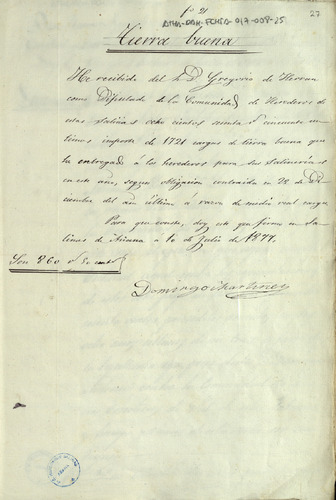 fº 21
ATHA-DAH-FCHIA-017-008-25
27
Tierra buena
He recibido del S. D. Gregorio de Herran
como Diputado de la Comunidad de Herederos de
estas salinas ocho cientos sesenta y cincuenta cen-
timos importe de 1721 cargas de tierra buena que
ha entregado a los herederos para sus salineras
en este año, segun obligacion contraida en 28 de Di-
ciembre del año último a razon de medio real carga
Para que conste, doy este que firmo en Sa-
linas de Añana a 10 de Julio de 1877.
Son 860 rs 50 cents
Domingo Martinez